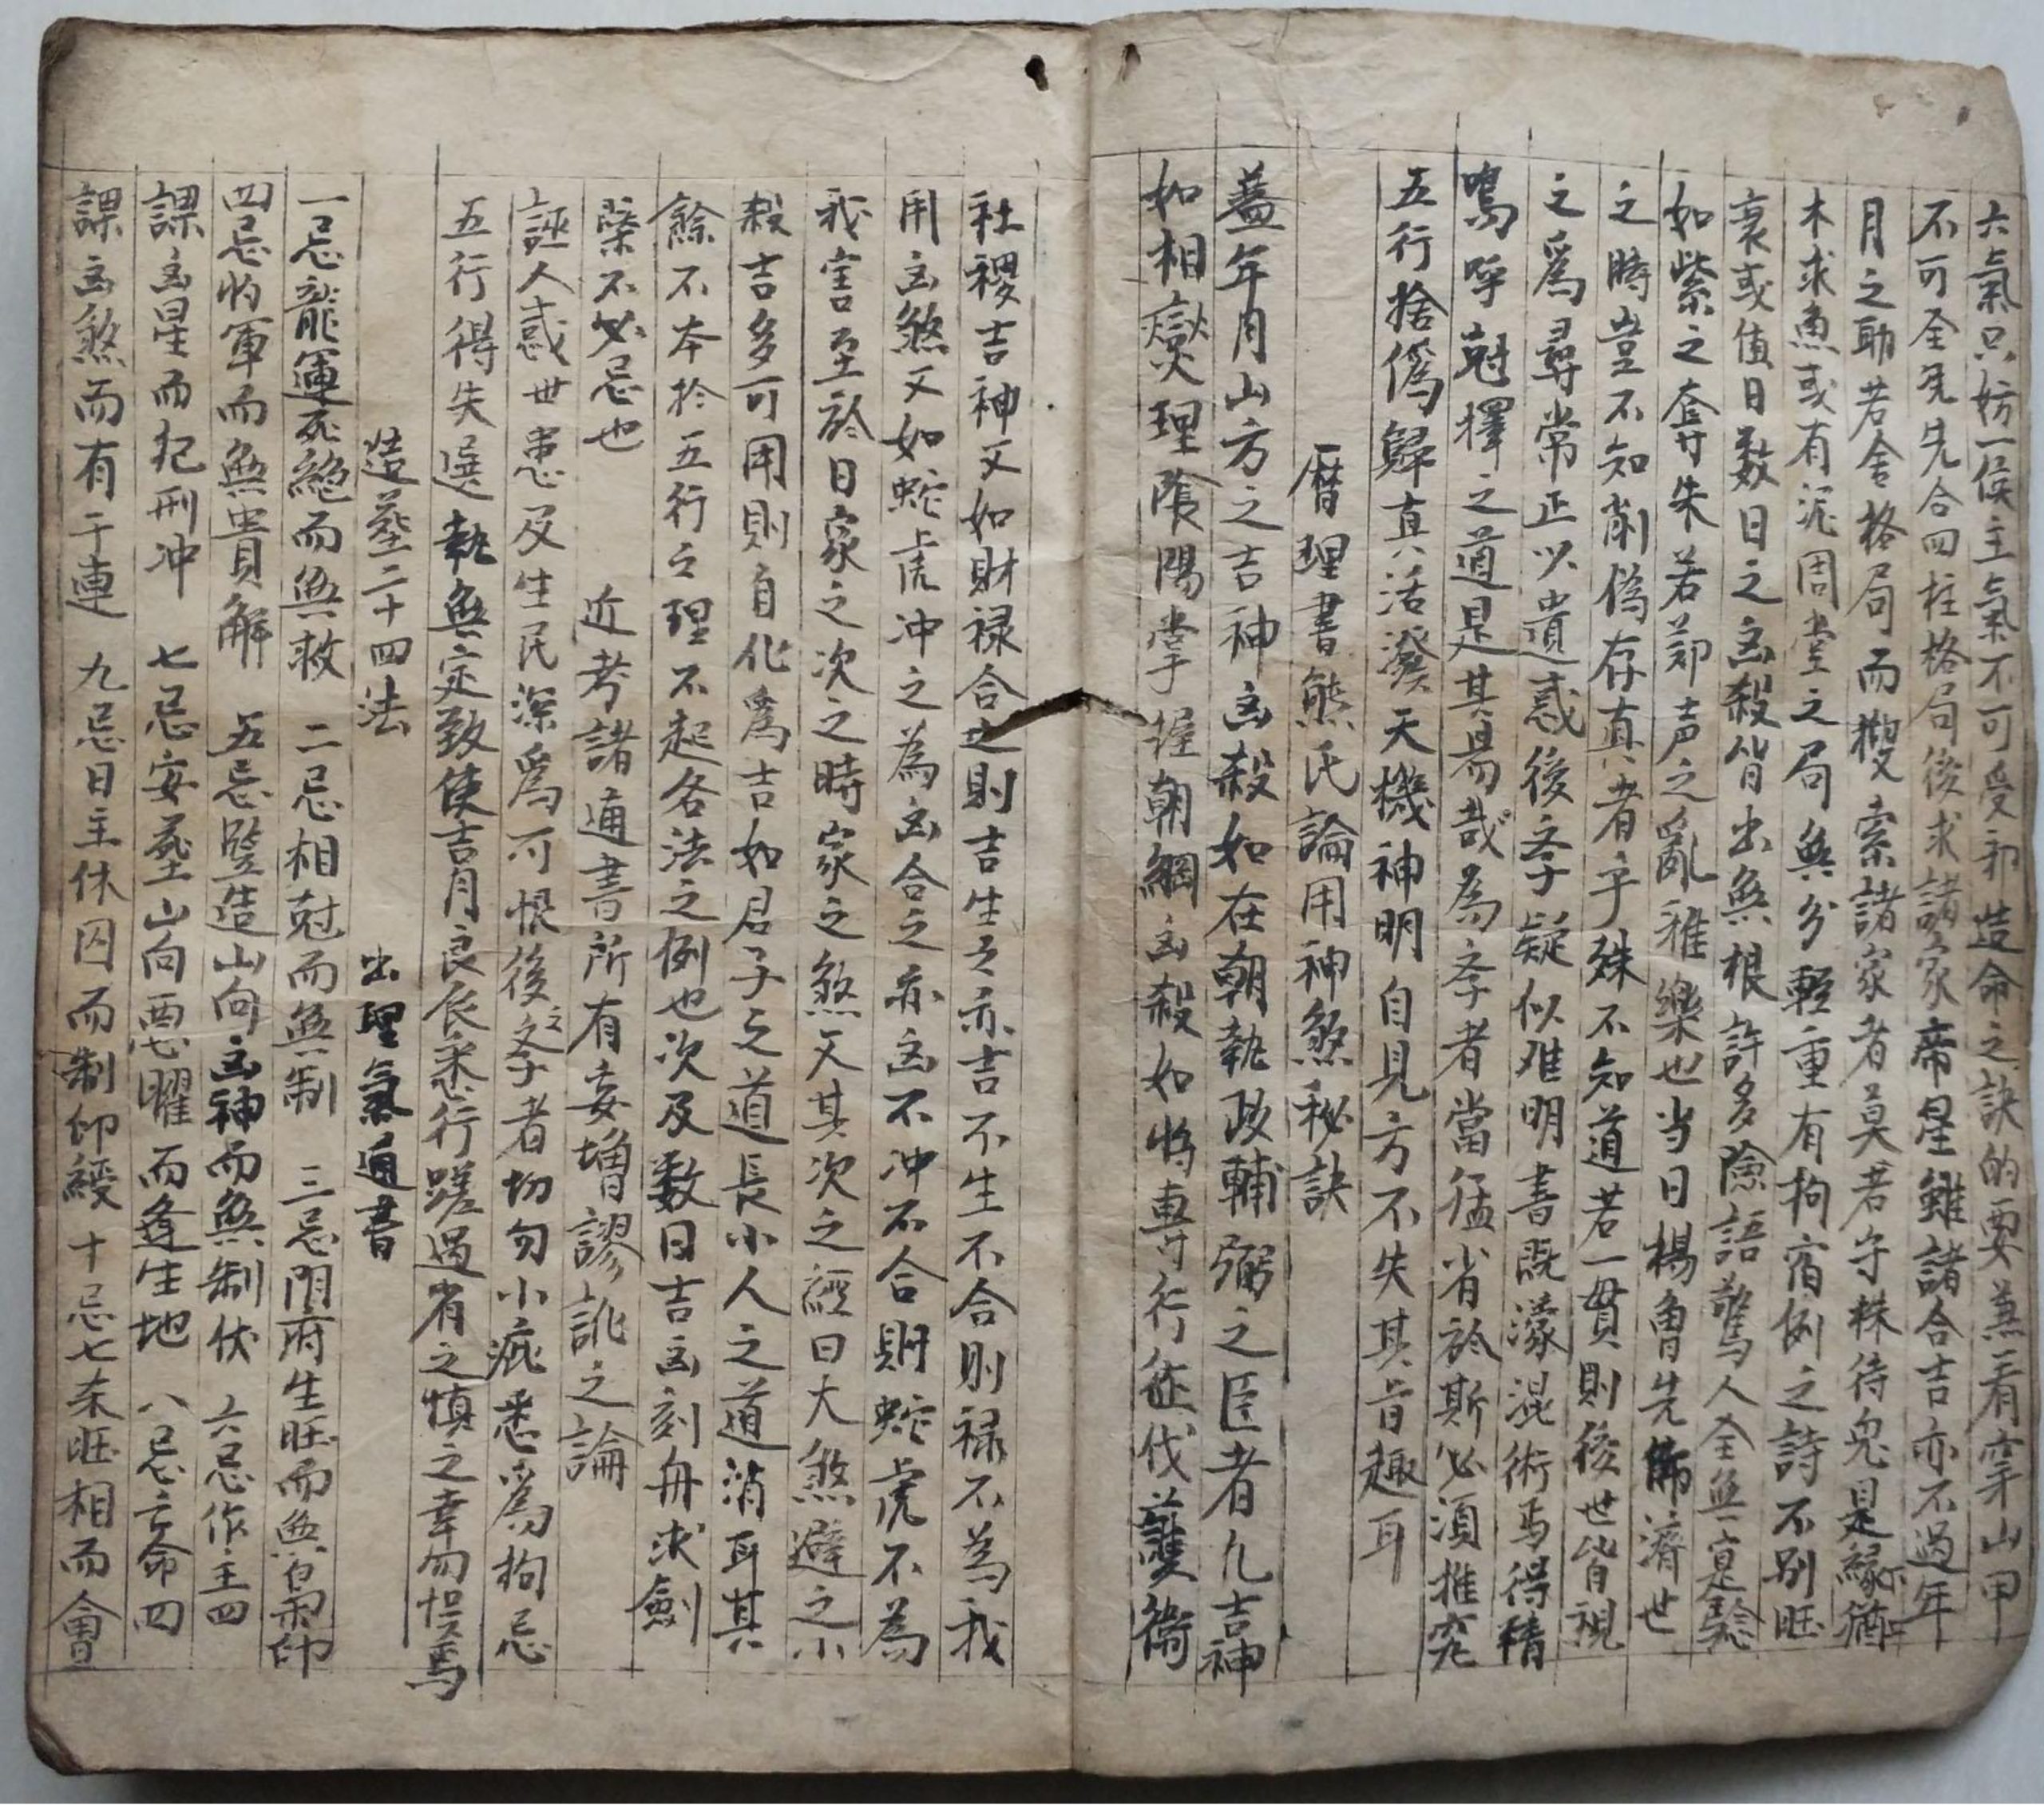 六氣只妨一侯主氣不可受邪造命之訣的要兼看穿山甲
不可全凴先合四柱格局後求諸家帝星雖諸合吉亦不過年
月之助若舍格局而搜索諸家者莫若守株待兔是緣木猶
木求魚或有泥周堂之局無分輕重有拘宿例之詩不別旺
衰或值日数日之凶殺皆出無根許多險語驚人全無寔驗
如紫之奪朱若郑声之亂雅樂也当日楊曾先師濟世
之時豈不知削偽存真者乎殊不知道若一貫則後世皆視
之爲尋常正以遺惑後斈疑似难明書既濛混術焉得精
嗚呼尅擇之道是其易哉為斈者當猛省於斯必須推究
五行捨偽歸真活潑天機神明自見方不失其旨趣耳
曆理書熊氏論用神煞秘訣
蓋年月山方之吉神凶殺如在朝執政輔弼之臣者凢吉神
如相燮理陰陽掌握朝綱凶殺如将專行征伐護衛
社稷吉神又如財禄合之則吉生之亦吉不生不合則禄不為我
用凶煞又如蛇虎冲之為凶合之亦凶不冲不合則蛇虎不為
我害至於日家之次之時家之煞又其次之經曰大煞避之小
殺吉多可用則自化爲吉如君子之道長小人之道消耳其
餘不本於五行之理不起各法之例也次及数日吉凶刻舟求劍
槩不必忌也 近考諸通書所有妄增謬訛之論
誣人惑世患及生民深爲可恨後之斈者切勿小疵悉爲拘忌
五行得失選執無定致使吉月良辰悉行蹉過省之慎之幸勿悞焉
造塟二十四法 出理氣通書
一忌龍運死絶而無救 二忌相尅而無制 三忌門府生旺而無帛印
四忌将軍而無貴解 五忌豎造山向凶神而無制伏 六忌作主四
課凶星而犯刑冲 七忌安塟山向惡曜而逢生地 八忌亡命四
課凶煞而有干連 九忌日主休囚而制印綬 十忌七杀旺相而會